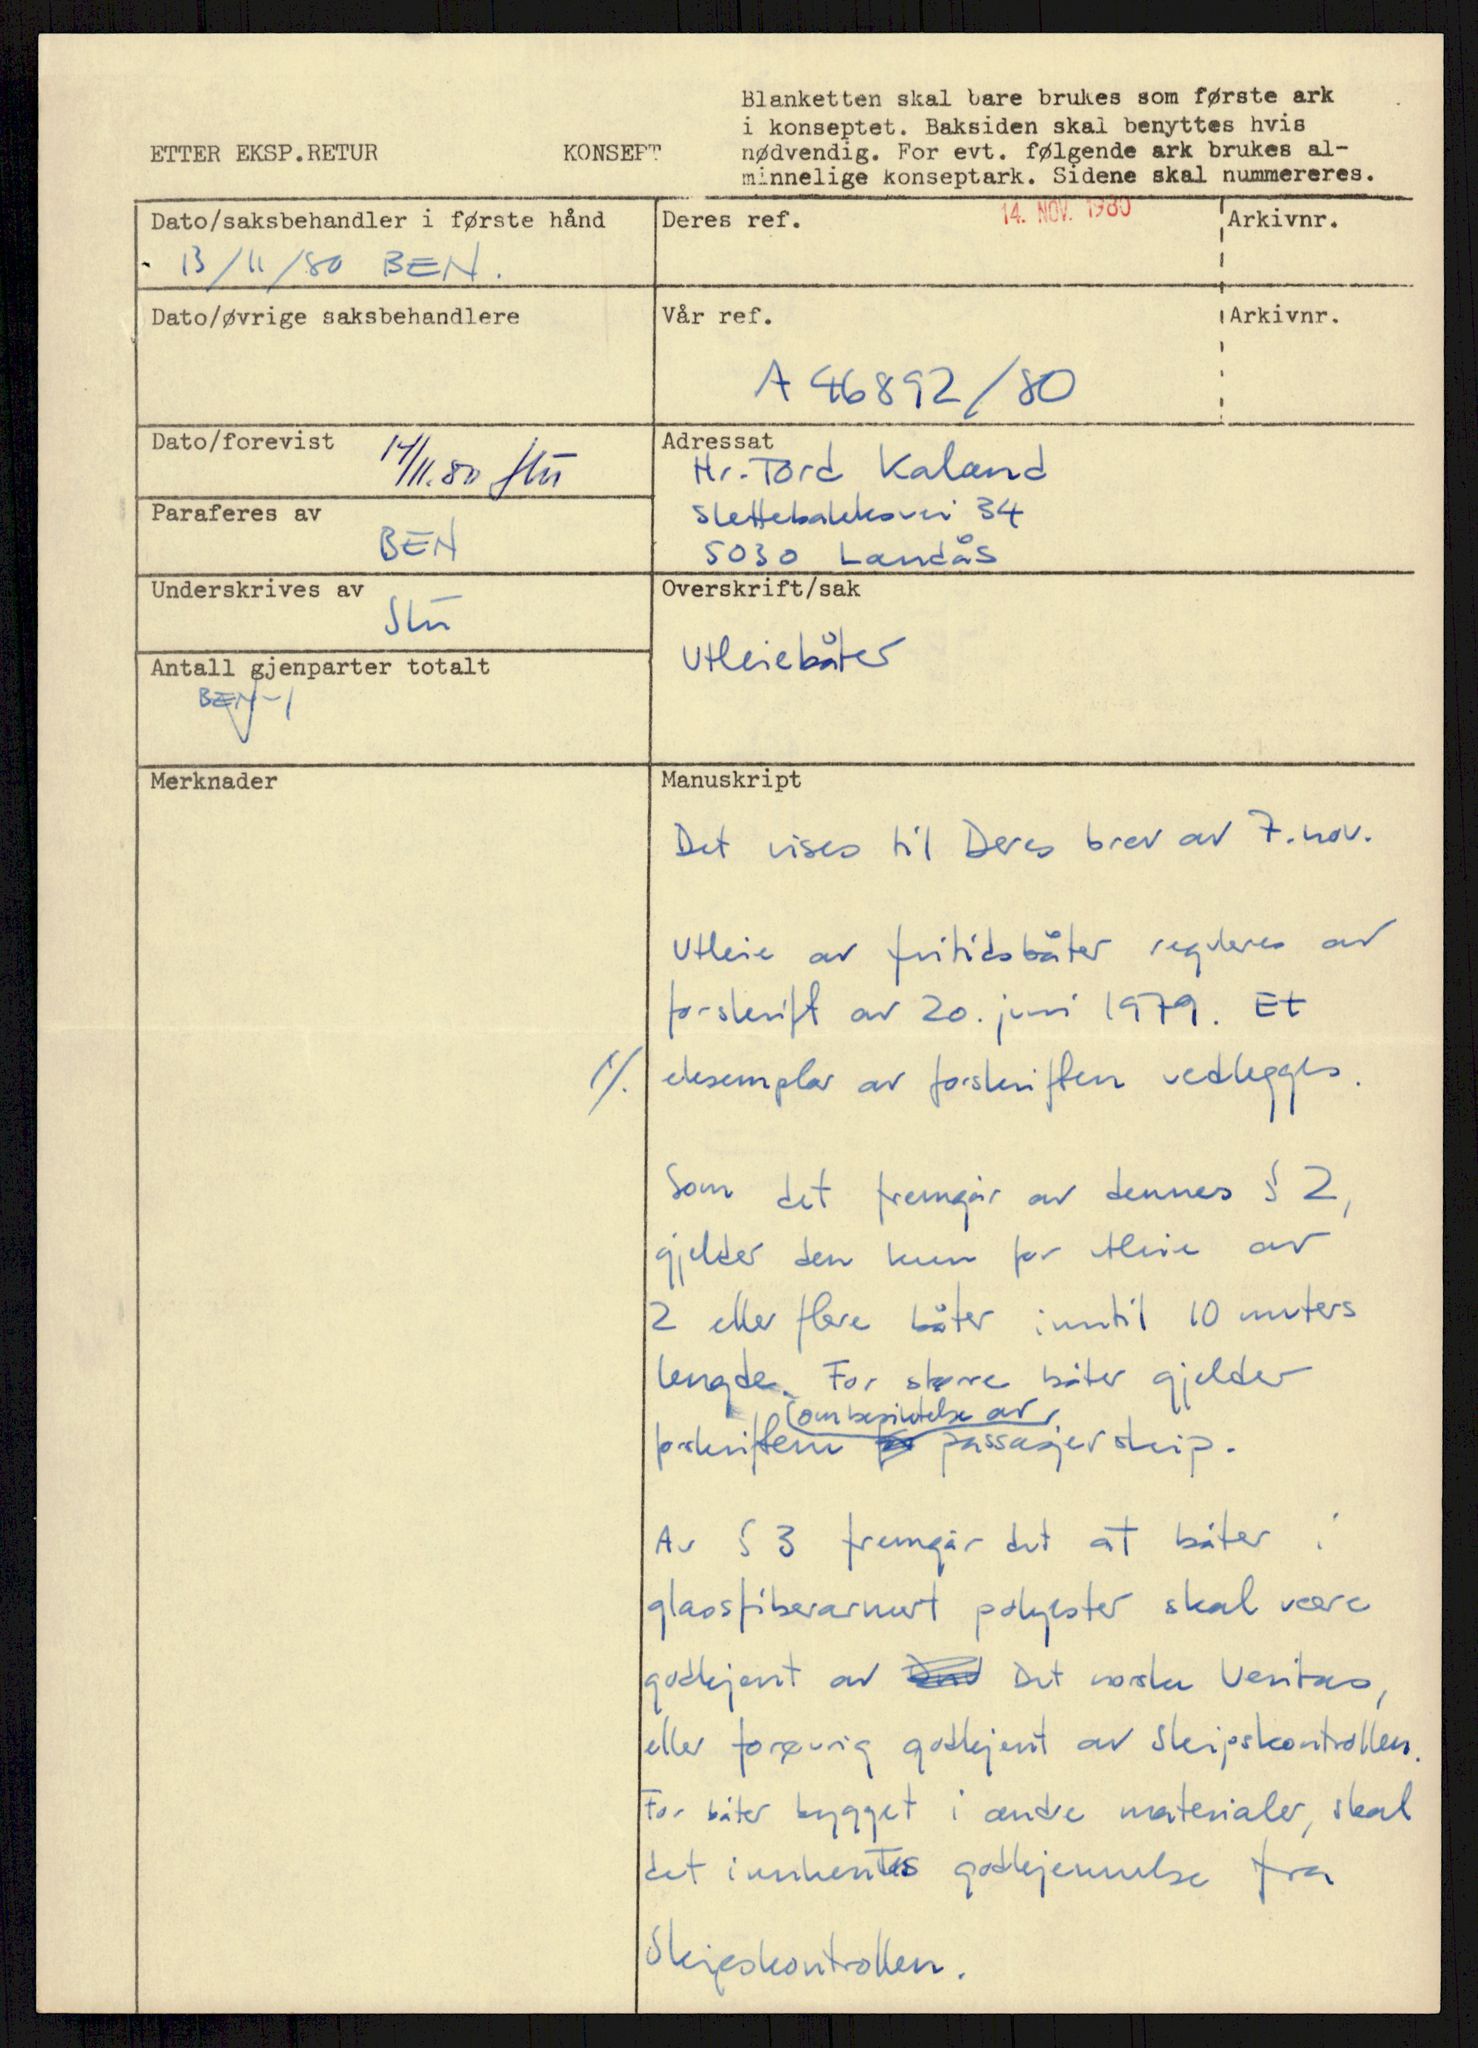 Blanketten skal bare brukes som første ark
i konseptet. Baksiden skal benyttes hvis
nødvendig. For evt. følgende ark brukes al-
minnelige konseptark. Sidene skal nummereres.
ETTER EKSP.RETUR KONSEPT
Dato/saksbehandler i første hånd
13/11/80 BEN.
Deres ref.
14. NOV. 1980
Arkivnr.
Dato/øvrige saksbehandlere
Vår ref.
A 46892/80
Arkivnr.
Dato/forevist
14/11.80
Adressat
Hr. Tord Kaland
Slettebakksvei 34
5030 Landås
Paraferes av
BEN
Underskrives av
Overskrift/sak
Utleiebåter
Antall gjenparter totalt
BEN-1
Merknader
Manuskript
Det vises til Deres brev av 7. nov.
Utleie av fritidsbåter reguleres av
forskrift av 20. juni 1979. Et
1/. eksemplar av forskriften vedlegges.
Som det fremgår av dennes § 2,
gjelder den kun for utleie av
2 eller flere båter inntil 10 meters
lengde. For større båter gjelder
om besiktelse av
forskriften passasjerskip.
Av § 3 fremgår det at båter i
glassfiberarmert polyester skal være
godkjent av Det norske Veritas,
eller forøvrig godkjent av Skipskontrollen.
For båter bygget i andre materialer, skal
det innhentes godkjennelse fra
Skipskontrollen.